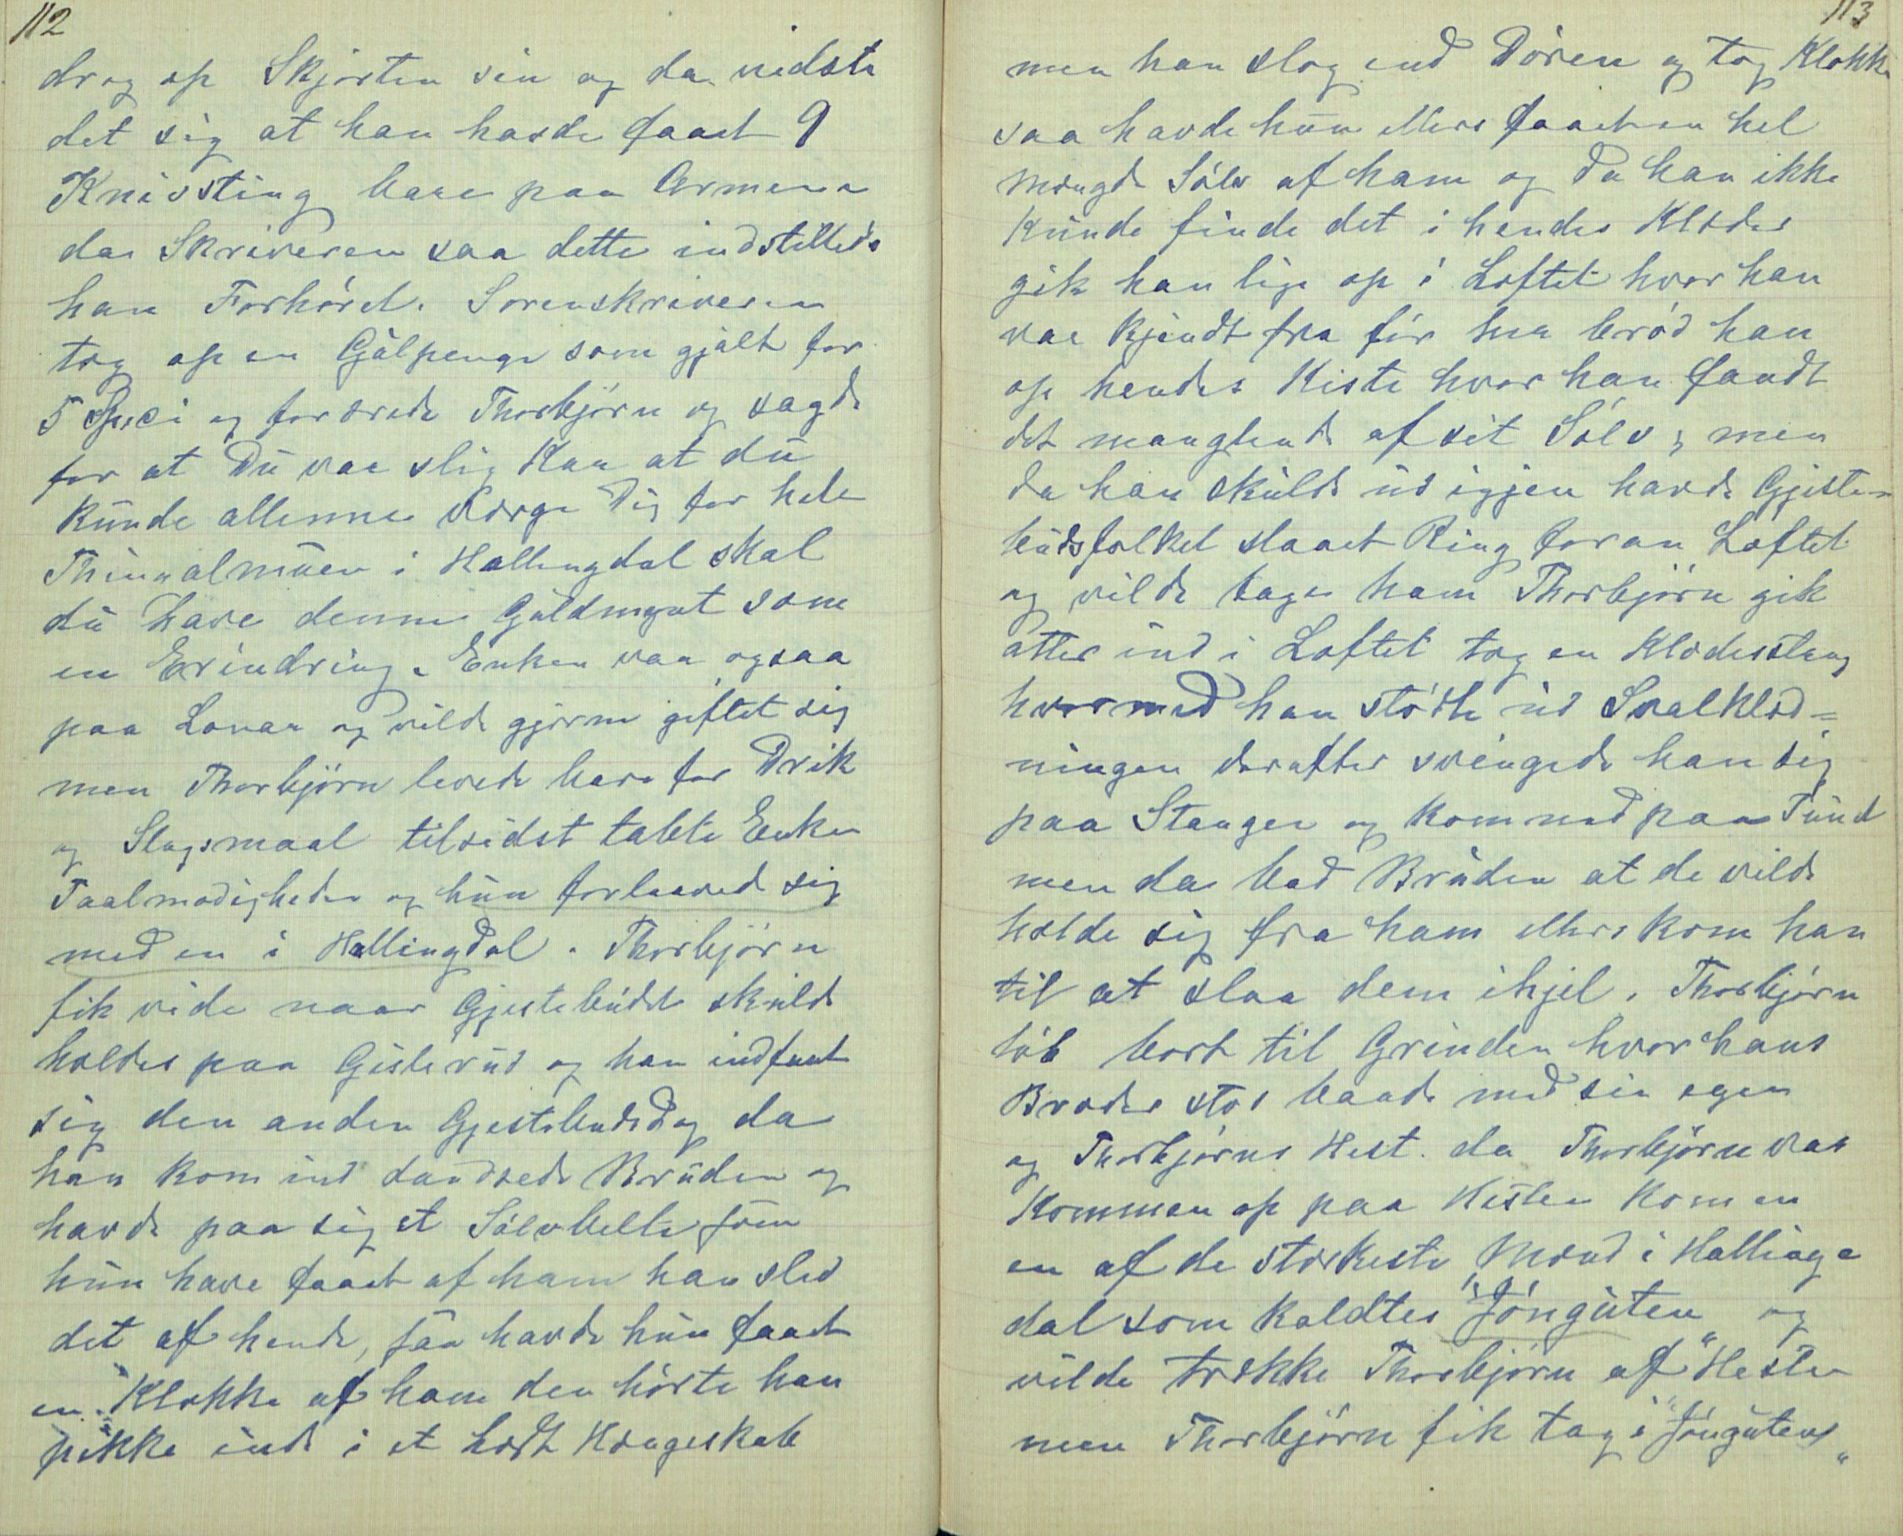 112
drog op Skjorten sin og da vidste
det sig at han havde faaet 9
Knivsting bare paa Armene
da Skriveren saa dette indstillede
han Forhöret. Sorenskriveren
tog op en Gülpenge som gjalt for
5 Speci og forærede Thorbjörn og sagde
for at Du var slig Kar at du
kunde allenne værge Dig for hele
Thingalmuen i Hallingdal skal
du have denne Guldmynt som
en Erindring. Enken var ogsaa
paa Lovar og vilde gjerne giftet sig
men Thorbjörn levede bare for Drik
og Slagsmaal tilsidst tabte Enken
Taalmodigheden og hun forlovede sig
med en i Hallingdal. Thorbjörn
fik vide naar Gjestebudet skulde
holdes paa Gislerud og han indfant
sig den anden Gjestebudsdag da
han kom ind dandsede Bruden og
havde paa sig et Sölvbelte som
hun have faaet af ham han sled
det af hende, saa havde hun faaet
en Klokke af ham den hörte han
pikke inde i et læst Hængeskab
113
men han slog ind Dören og tog Klokke
saa havde hun ellers faaet en hel
Mængde Sölv af ham og da han ikke
kunde finde det i hendes Klæder
gik han lige op i Loftet hvor han
var kjendt fra för her bröd han
op hendes Kiste hvor han fandt
det manglende af sit Sölv, men
da han skulde ud igjen havde Gjeste-
budsfolket slaaet Ring foran Loftet
og vilde tage ham Thorbjörn gik
atter ind i Loftet tog en Klædesstang
hvormed han stödte ud Svalklæd=
ningen derefter svingede han sig
paa Stangen og kom ned paa Tunet
men da bad Bruden at de vilde
holde sig fra ham ellers kom han
til at slaa dem ihjel. Thorbjörn
löb bort til Grinden hvor hans
Broder stod baade med sin egen
og Thorbjörns Hest. da Thorbjörn var
kommen op paa Hesten kom en
en af de stærkeste Mænd i Hallinge
dal som kaldtes "Jönguten" og
vilde trække Thorbjörn af Hesten
men Thorbjörn fik tag i "Jöngutens"